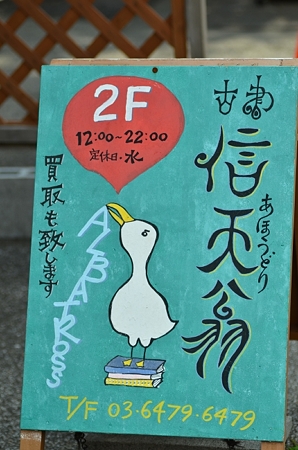 古書
信天翁
あほうどり
2F
12:00~22:00
定休日・水
買取も致します
ALBATROSS
T/F 03-6479-6479